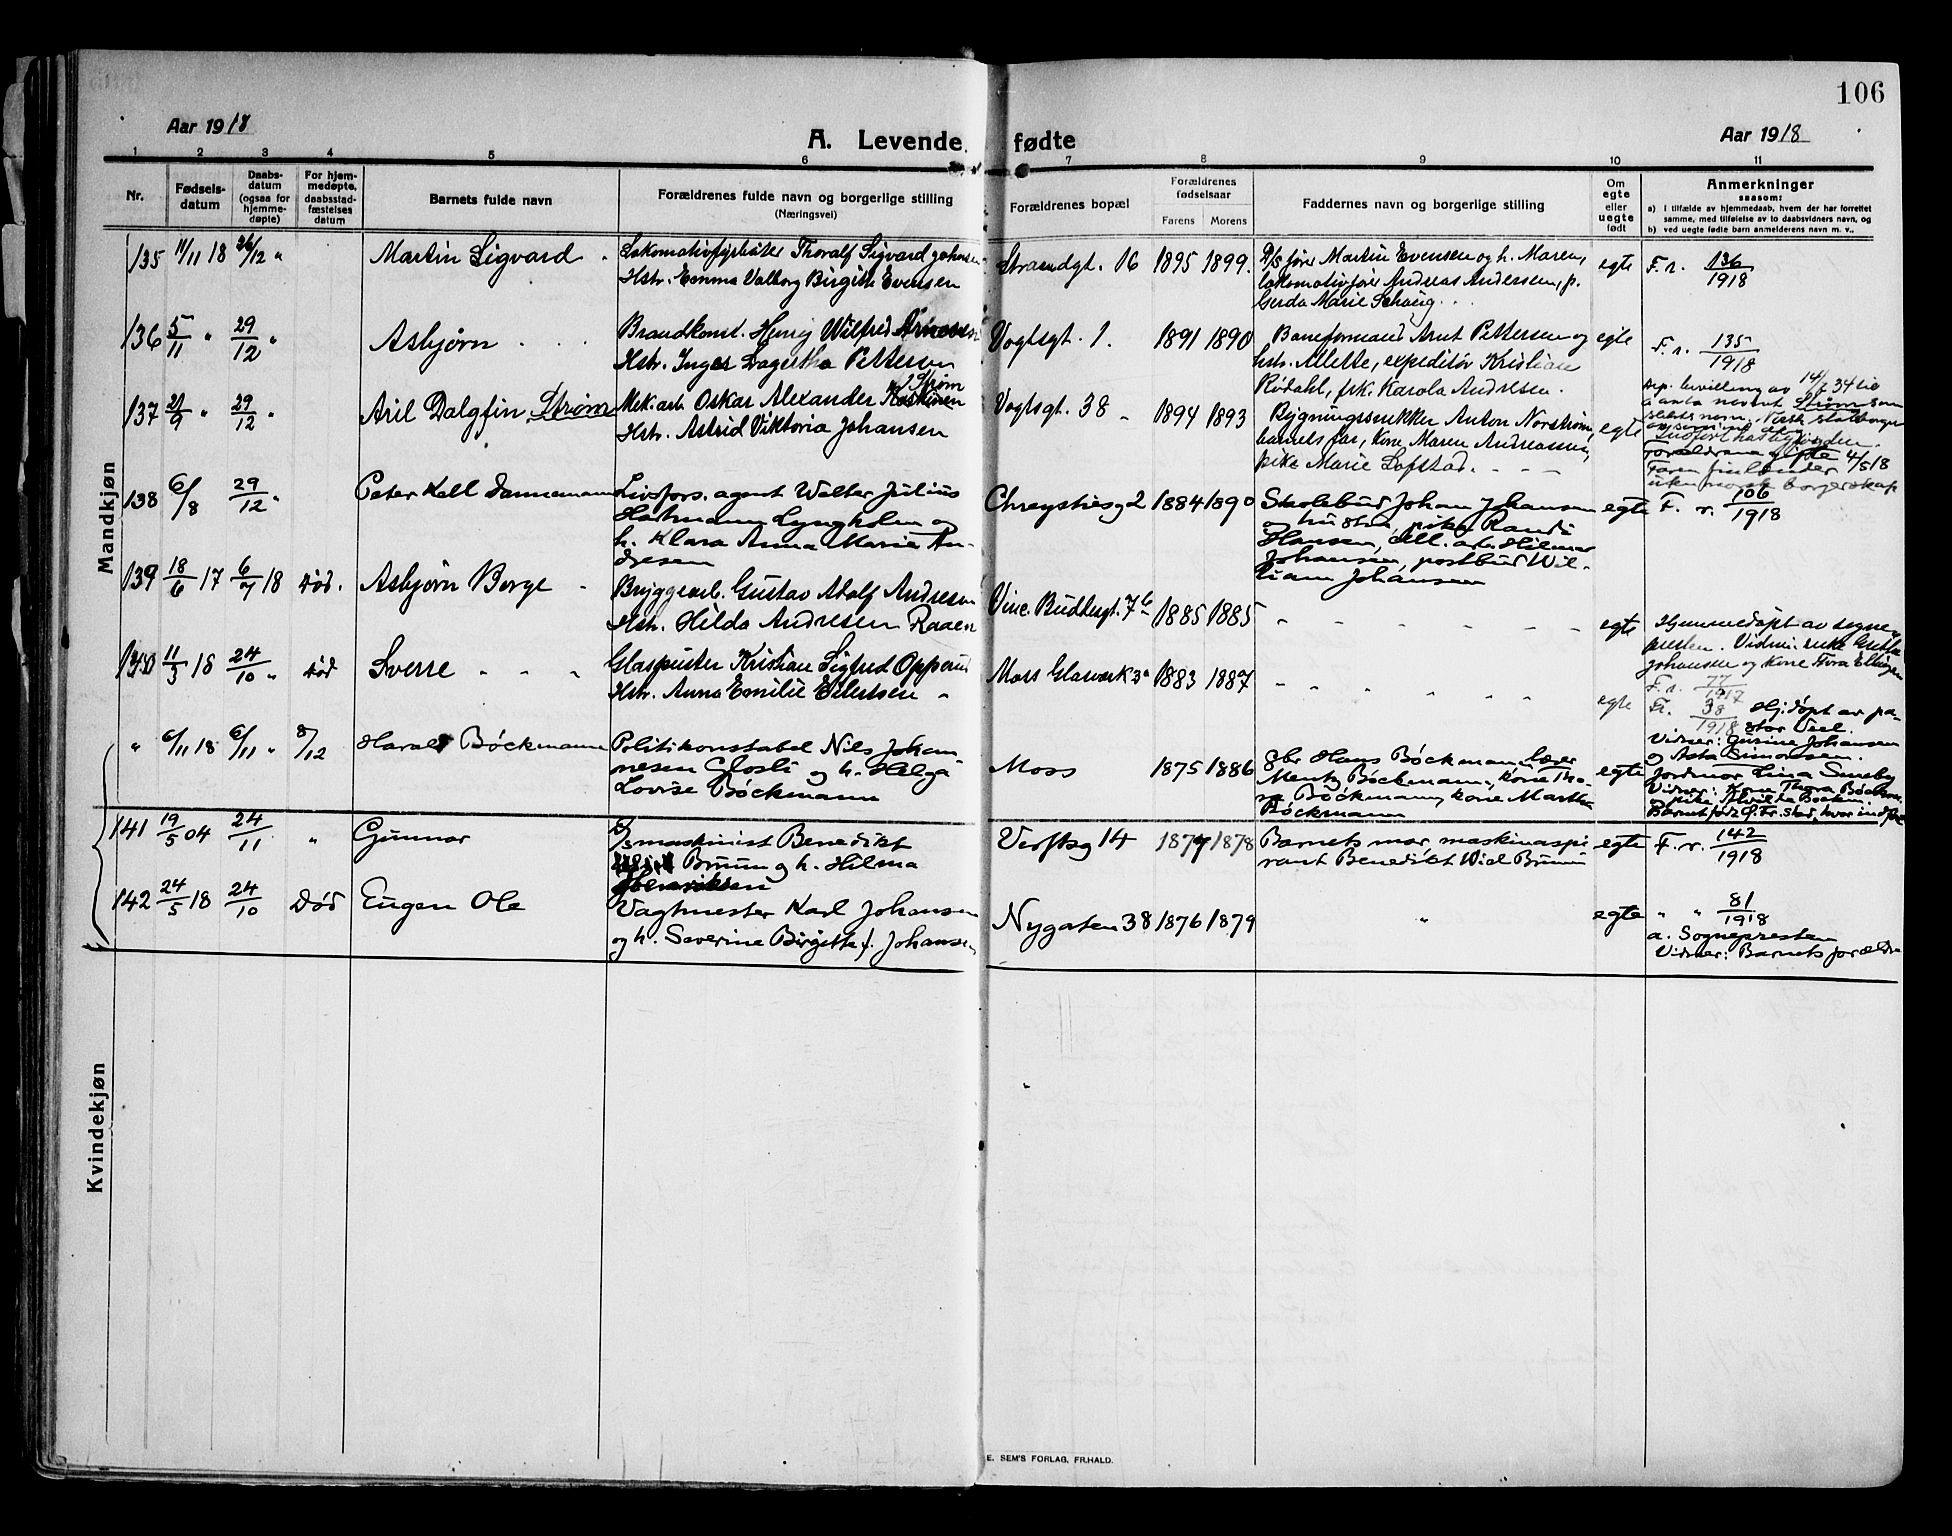 106
Aar 1918
A. Levende fødte
Aar 1918
1 2 3 4 5 6 7 8 9 10 11
Nr.
Fødsels-
datum
Daabs-
datum
(ogsaa for
hjemme-
døpte)
For hjem-
medøpte,
daabsstad-
fæstelses
datum
Barnets fulde navn
Forældrenes fulde navn og borgerlige stilling
(Næringsvei)
Forældrenes bopæl
Forældrenes
fødselsaar
Farens Morens
Faddernes navn og borgerlige stilling
Om
egte
eller
uegte
født
Anmerkninger
saasom:
a) I tilfælde av hjemmedaab, hvem der har forrettet
samme, med tilføielse av to daabsvidners navn, og
b) ved uegte fødte barn anmelderens navn m. v.,
Mandkjøn
135 11/11 18 26/12 " Martin Sigvard
Lokomotivfyrbøter Thoralf Sigvard Johansen
Hstr. Emma Valborg Birgitte Evensen
Strandgt. 16 1895 1899.
D/s fører Martin Evensen og h. Maren,
lokomotivfører Andreas Andersen, p.
Gerda Marie Schaug
egte F. r. 136/1918
136 5/11 " 29/12 " Asbjørn
Brandkonst. Henry Wilfred Arnesen
Hstr. Inger Dagertha Pettersen
Vogtsgt. 1. 1891 1890
Baneformand Arnt Pettersen og
hstr. Allette, expeditør Kristian
Rødahl, frk. Karola Andresen.
egte F. r. 135/1918
137 21/9 " 29/12 " Aril Dalgfin Strøm
Mek. arb. Oskar Alexander Koskinen
Strøm
Hstr. Astrid Viktoria Johansen
Vogtsgt. 38 1894 1893
Bygningssnekker Anton Norstrøm,
barnets far, kone Maren Andreassen,
pike Marie Lofstad.
egte
bevilling av 14/7 34 til
å anta navnet Strøm som
Forældrene gifte 4/5 18
Faren finlænder
uten norsk borgerskap
138 6/8 29/12 " Peter Kell Dannemann
Livsfors. agent Walter Julius
Hartmann Lyngholm og
h. Klara Anna Marie An-
dresen
Chrystiesg 2 1884 1890
Skolebud Johan Johansen
og hustru, pike Randi
Hansen, Cell. arb. Hilmar
Johansen, postbud Wil-
liam Johansen
egte F. r. 106/1918
139 18/6 17 6/7 18 Død. Asbjørn Borge
Bryggearb. Gustav Adolf Andresen
Hstr. Hilda Andresen Raaen
Vinc. Buddesgt. 7b 1885 1885
egte
Hjemmedøpt av sogne-
presten. Vidner: enke
Johansen og kone Thora Ellingsen
F. r. 77/1917
140 11/3 18 24/10 " Død Sverre
Glaspuster Kristian Sigfred Opperud
Hstr. Anna Emilie Eilertsen
Moss Glasværk 3a 1883 1887
egte
Fr. 38/1918 Hj.døpt av pa-
stor Veel.
Vidner: Gusine Johansen
og Asta Simonsen.
" 6/11 18 6/11 " 8/12 Harald Bøckmann
Politikonstabel Nils Johan-
nesen Glosli og h. Helga
Lovise Bøckmann
Moss 1875 1886
Gbr Hans Bøckman, lærer
Mentz Bøckmann, kone Tho-
ra Bøckmann, kone Martha
Bøckmann
egte
Jordmor Lina Smeby
Vidner: Kone Thora Bøckman
og pike Alvilda Bøckm.
141 19/5 04 24/11 " Gunnar
D/s maskinist Benedikt
Bruun og h. Hilma
Henriksen
Verftsg 14 1874 1878
Barnets mor, maskinaspi-
rant Benedikt Wiel Bruun
egte F. r. 142/1918
142 24/5 18 24/10 Død Eugen Ole
Vagtmester Karl Johansen
og h. Severine Birgitte f. Johansen
Nygaten 38 1876 1879
"
egte " " 81/1918
a. Sognepresten
Vidner: Barnets forældre
Kvindekjøn
E. SEM'S FORLAG, FR.HALD.